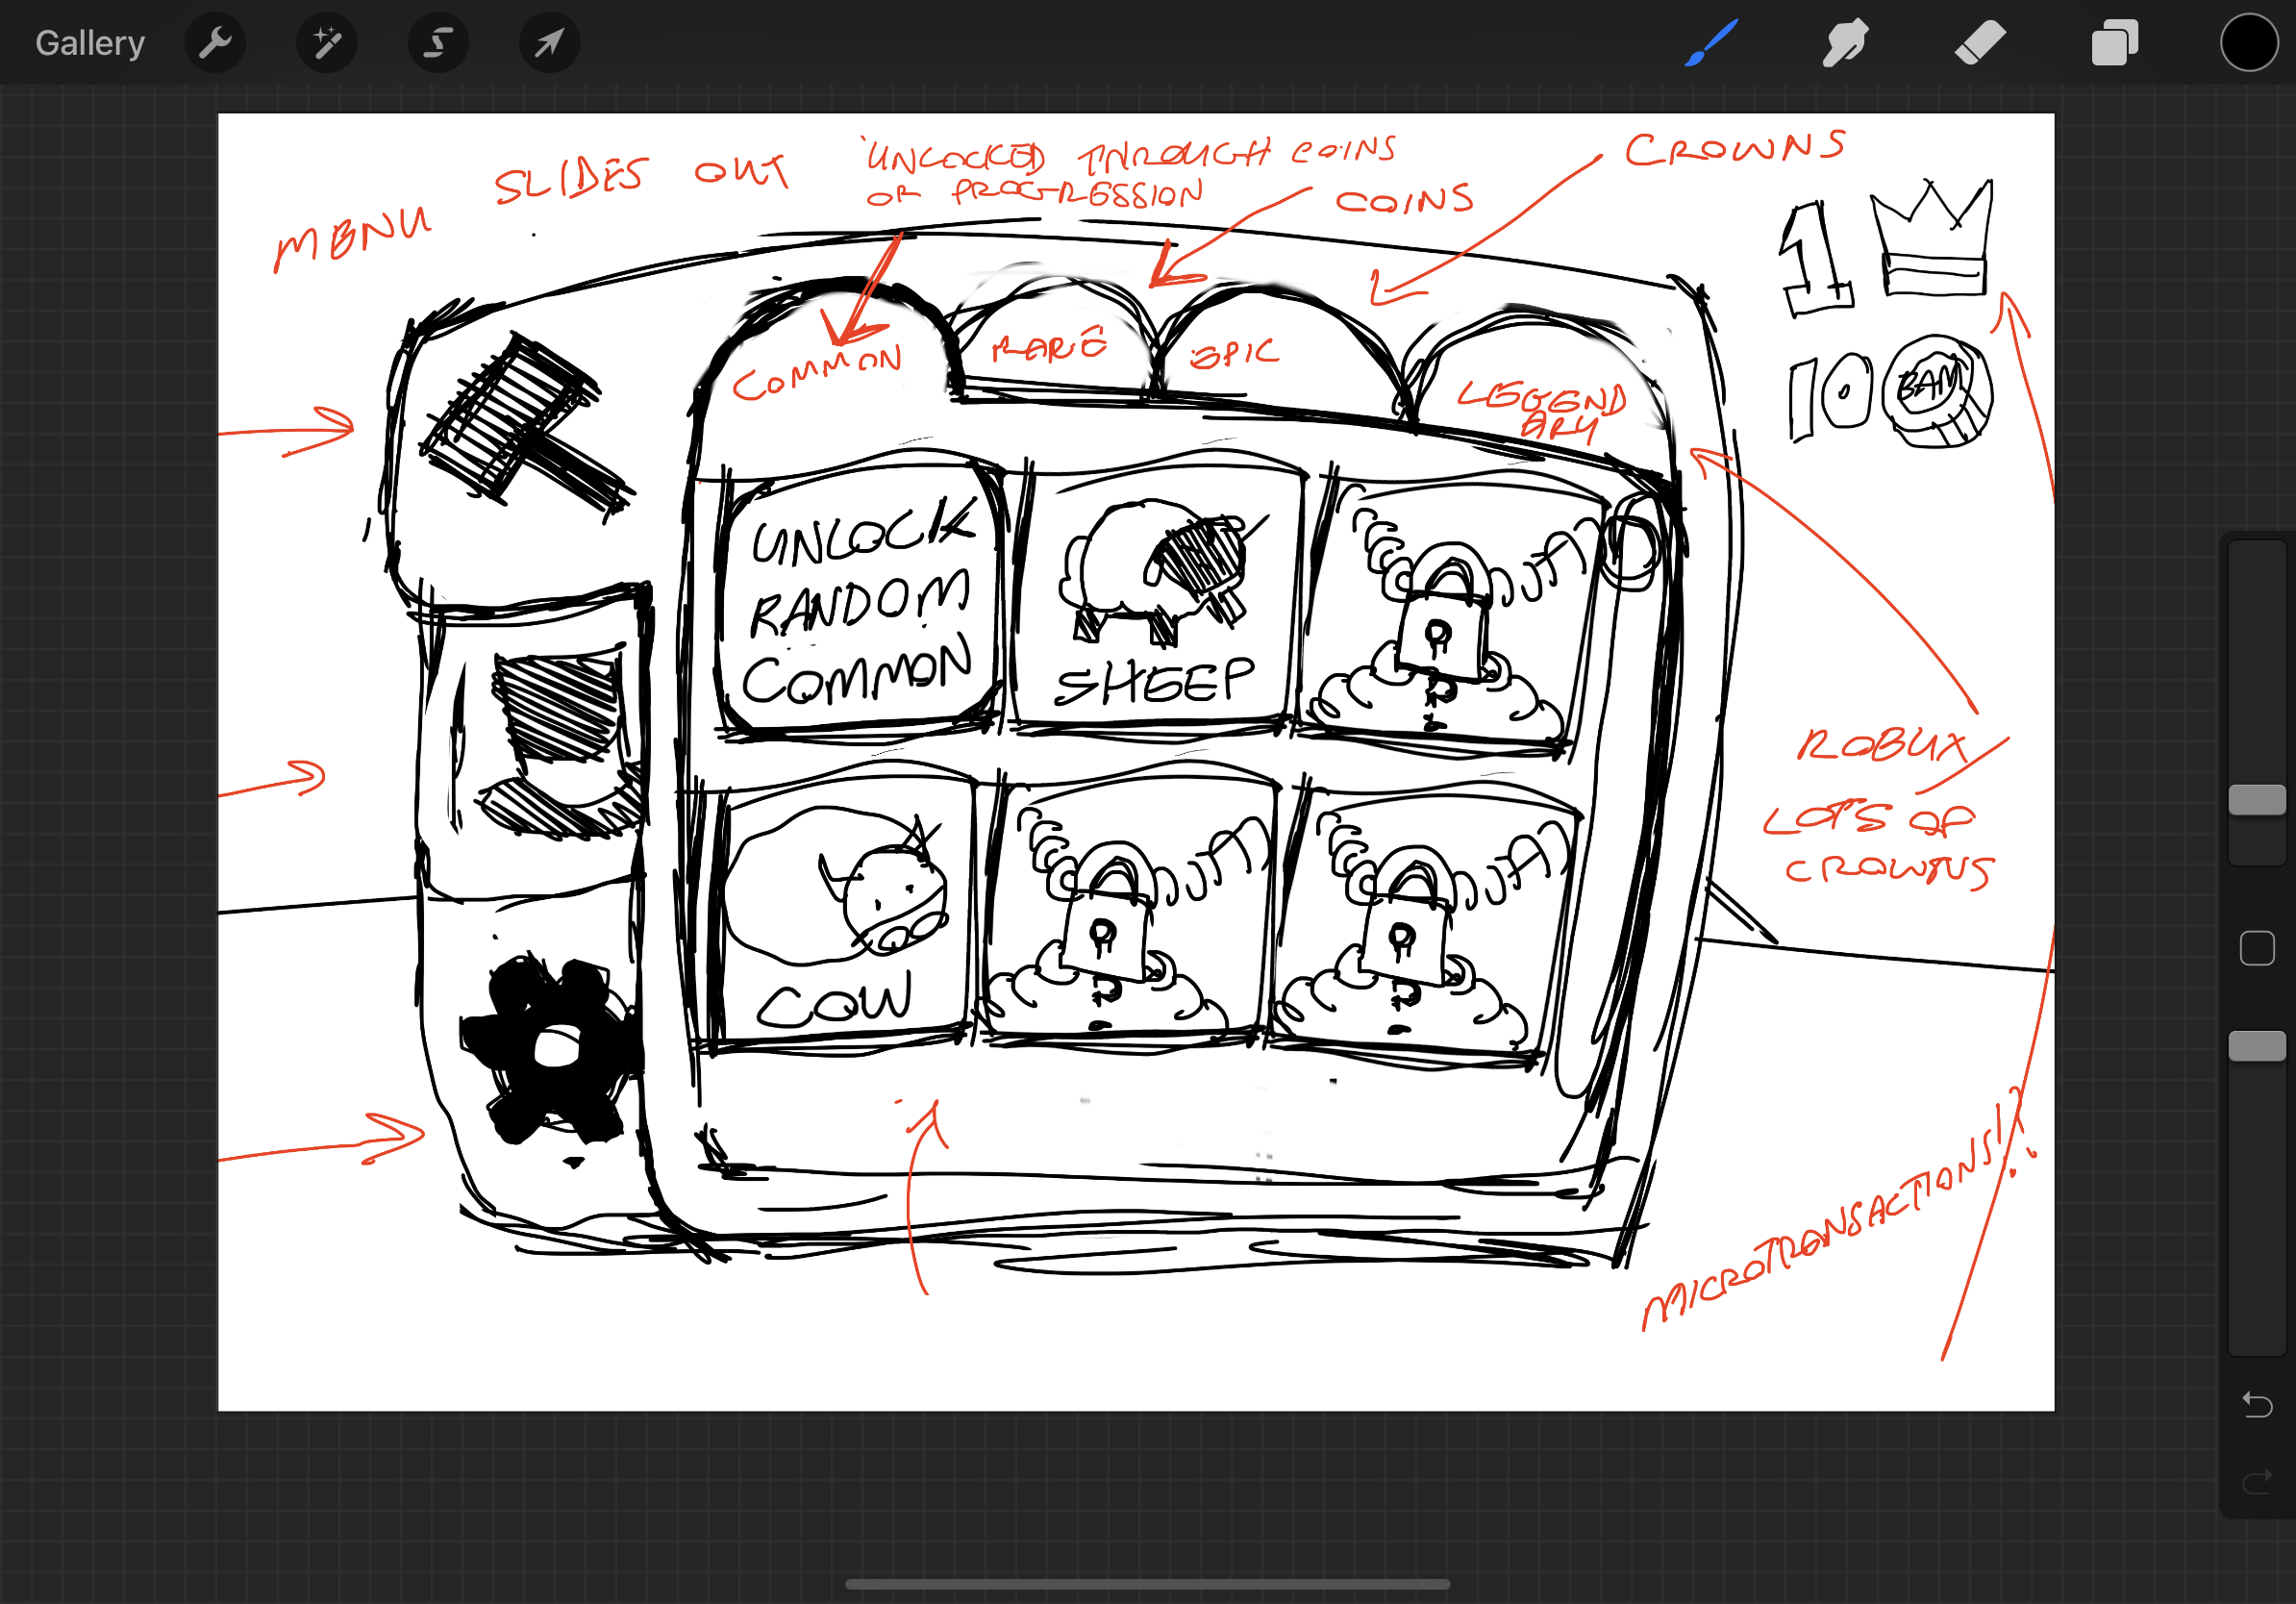 Gallery
MENU
SLIDES OUT
UNLOCKED THROUGH COINS
OR PROGRESSION
COINS
CROWNS
1
10 BAM
COMMON
RARE
EPIC
LEGEND
ARY
UNLOCK
RANDOM
COMMON
SHEEP
COW
ROBUX
LOTS OF
CROWNS
MICROTRANSACTIONS!?